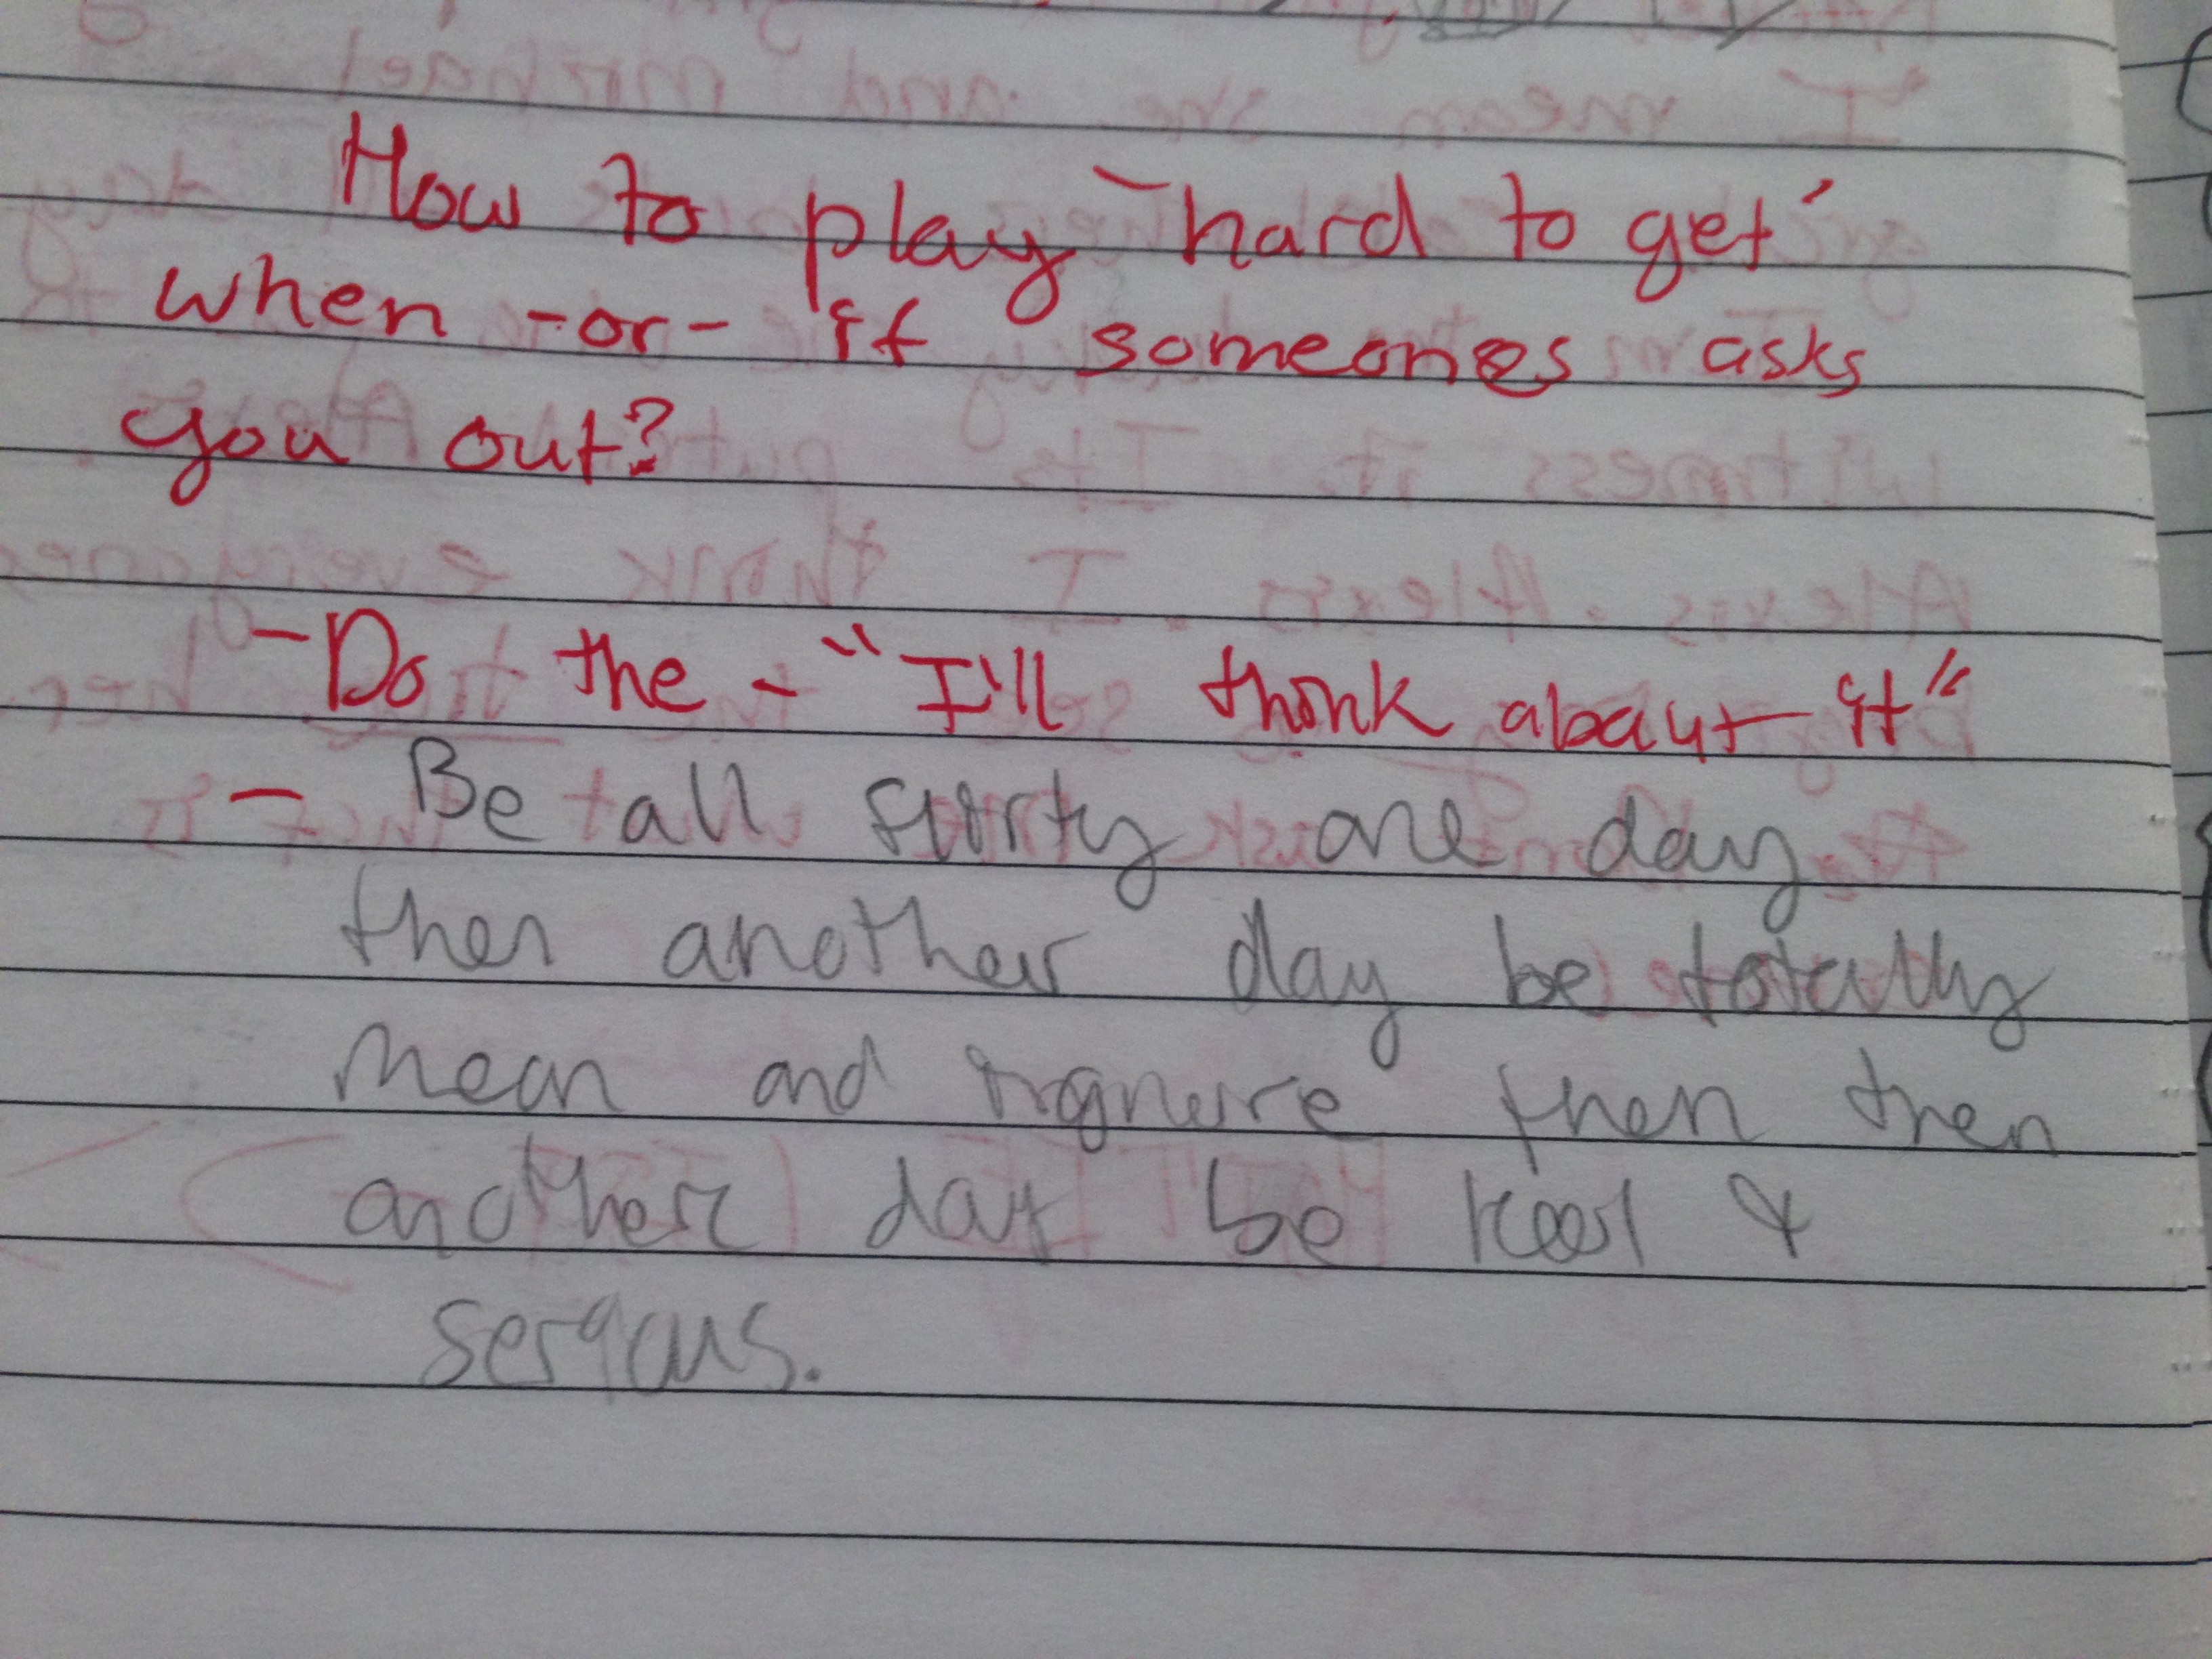 How to play "hard to get"
when -or- if someones asks
you out?
- Do the - "I'll think about it"
- Be all flirty one day
then another day be totally
mean and ignore them then
another day be kool &
serious.